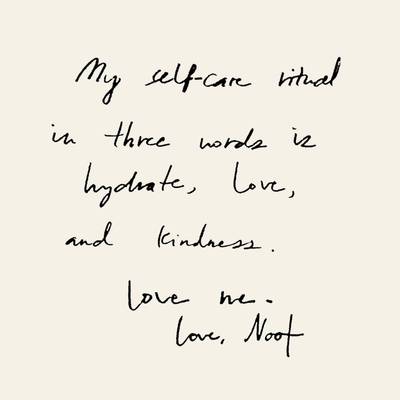 My self-care ritual
in three words is
hydrate, love,
and kindness.
Love me.
Love, Noof